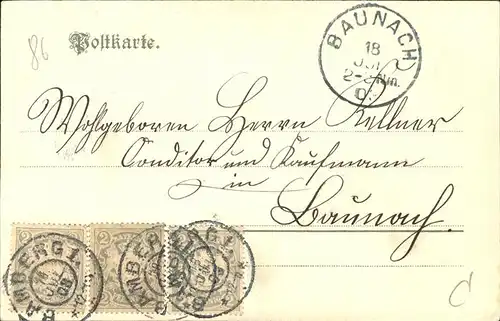 86
Postkarte.
BAUNACH
18
2-3 Nm.
Wohlgeboren Herrn Kellner
Conditor und Kaufmann
in
Baunach.
2 2
BAMBERG 1. BAMBERG 1. BAMBERG 1.
C